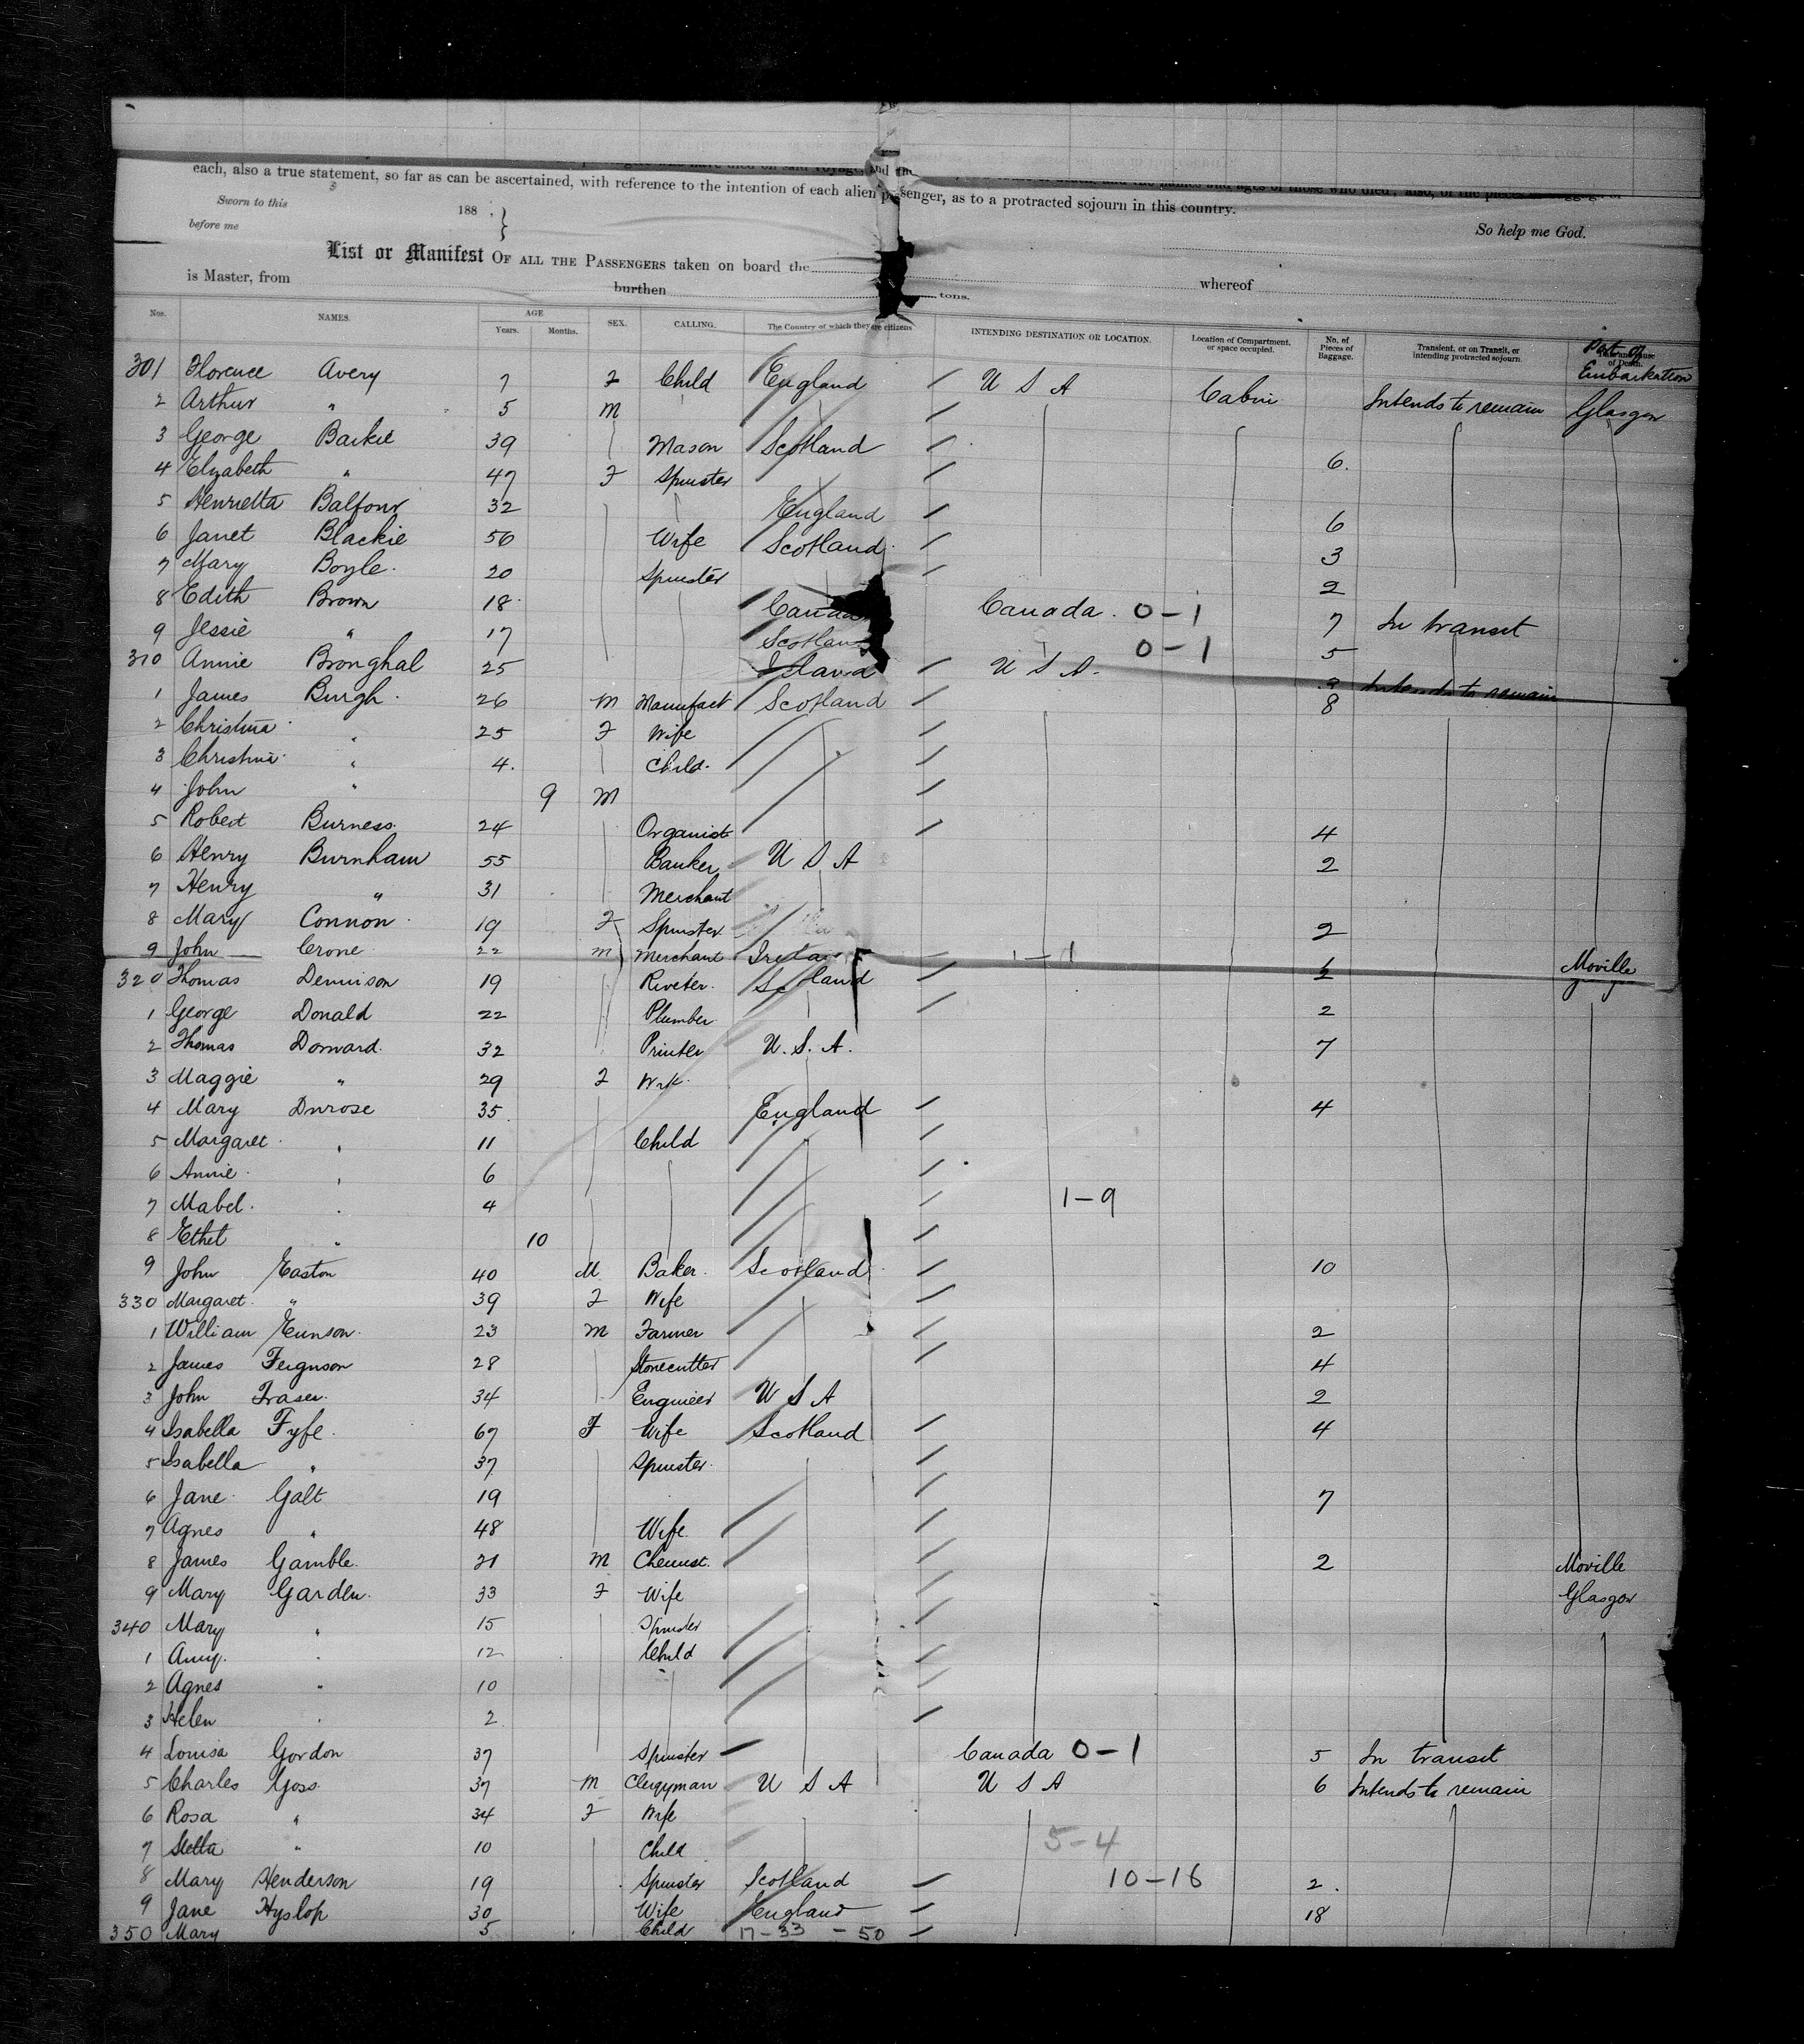 each, also a true statement, so far as can be ascertained, with reference to the intention of each alien passenger, as to a protracted sojourn in this country.
Sworn to this 188
before me So help me God.
List or Manifest OF ALL THE PASSENGERS taken on board the whereof
is Master, from burthen tons.
Nos. NAMES. AGE Years. Months. SEX. CALLING. The Country of which they are citizens INTENDING DESTINATION OR LOCATION. Location of Compartment, or space occupied. No. of Pieces of Baggage. Transient, or on Transit, or intending protracted sojourn. Port of Embarkation
301 Florence Avery 7 F Child England / U S A Cabin Intends to remain Glasgow
2 Arthur " 5 M /
3 George Barkie 39 Mason Scotland / 6
4 Elizabeth " 47 F Spinster /
5 Henrietta Balfour 32 England / 6
6 Janet Blackie 56 Wife Scotland / 3
7 Mary Boyle 20 Spinster / 2
8 Edith Brown 18 Canada Canada 0-1 7 In transit
9 Jessie " 17 Scotland 0-1 5
310 Annie Bronghal 25 / U S A Intends to remain
1 James Burgh 26 M Manufact Scotland / 8
2 Christina " 25 F Wife /
3 Christina " 4 Child /
4 John " 9 M /
5 Robert Burness 24 Organist / 4
6 Henry Burnham 55 Banker U S A 2
7 Henry " 31 Merchant
8 Mary Connon 19 F Spinster 2
9 John Crone 22 M Merchant 1-1 Moville
320 Thomas Dennison 19 Riveter Scotland /
1 George Donald 22 Plumber / 2
2 Thomas Dorward 32 Printer U.S.A. 7
3 Maggie " 29 F Wife
4 Mary Durose 35 England / 4
5 Margaret " 11 Child /
6 Annie " 6 /
7 Mabel " 4 / 1-9
8 Ethel " 10 /
9 John Easton 40 M Baker Scotland / 10
330 Margaret " 39 F Wife /
1 William Eunson 23 M Farmer / 2
2 James Ferguson 28 Stonecutter / 4
3 John Fraser 34 Engineer U S A 2
4 Isabella Fyfe 67 F Wife Scotland / 4
5 Isabella " 37 Spinster /
6 Jane Galt 19 / 7
7 Agnes " 48 Wife /
8 James Gamble 21 M Chemist / 2 Moville
9 Mary Garden 33 F Wife / Glasgow
340 Mary " 15 Spinster /
1 Amy " 12 Child /
2 Agnes " 10 /
3 Helen " 2 /
4 Louisa Gordon 37 Spinster Canada 0-1 5 In transit
5 Charles Goss 37 M Clergyman U S A U S A 6 Intends to remain
6 Rosa " 34 F Wife
7 Stella " 10 Child 5-4
8 Mary Henderson 19 Spinster Scotland / 10-16 2
9 Jane Hyslop 30 Wife England / 18
350 Mary 5 Child 17-33 - 50 /